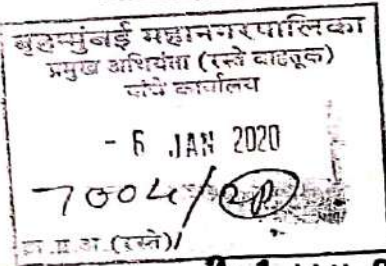 बृहन्मुंबई महानगरपालिका
प्रमुख अभियंता (रस्ते वाहतूक)
यांचे कार्यालय
- 6 JAN 2020
7004/
प्र.प्र.अ.(रस्ते)/